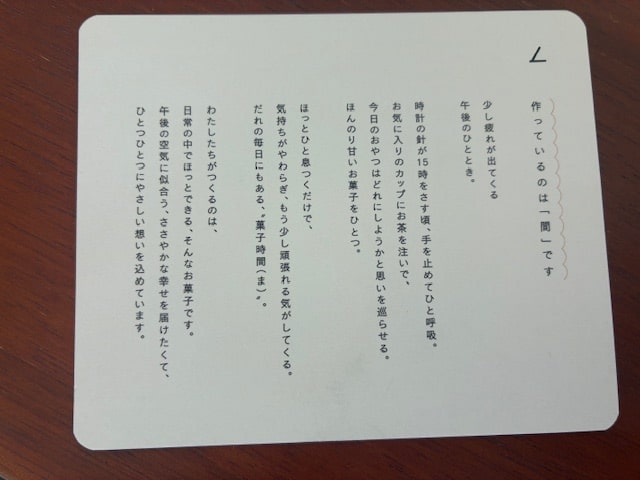 作っているのは「間」です
少し疲れが出てくる
午後のひととき。
時計の針が15時をさす頃、手を止めてひと呼吸。
お気に入りのカップにお茶を注いで、
今日のおやつはどれにしようかと思いを巡らせる。
ほんのり甘いお菓子をひとつ。
ほっとひと息つくだけで、
気持ちがやわらぎ、もう少し頑張れる気がしてくる。
だれの毎日にもある、〝菓子時間(ま)〟。
わたしたちがつくるのは、
日常の中でほっとできる、そんなお菓子です。
午後の空気に似合う、ささやかな幸せを届けたくて、
ひとつひとつにやさしい想いを込めています。